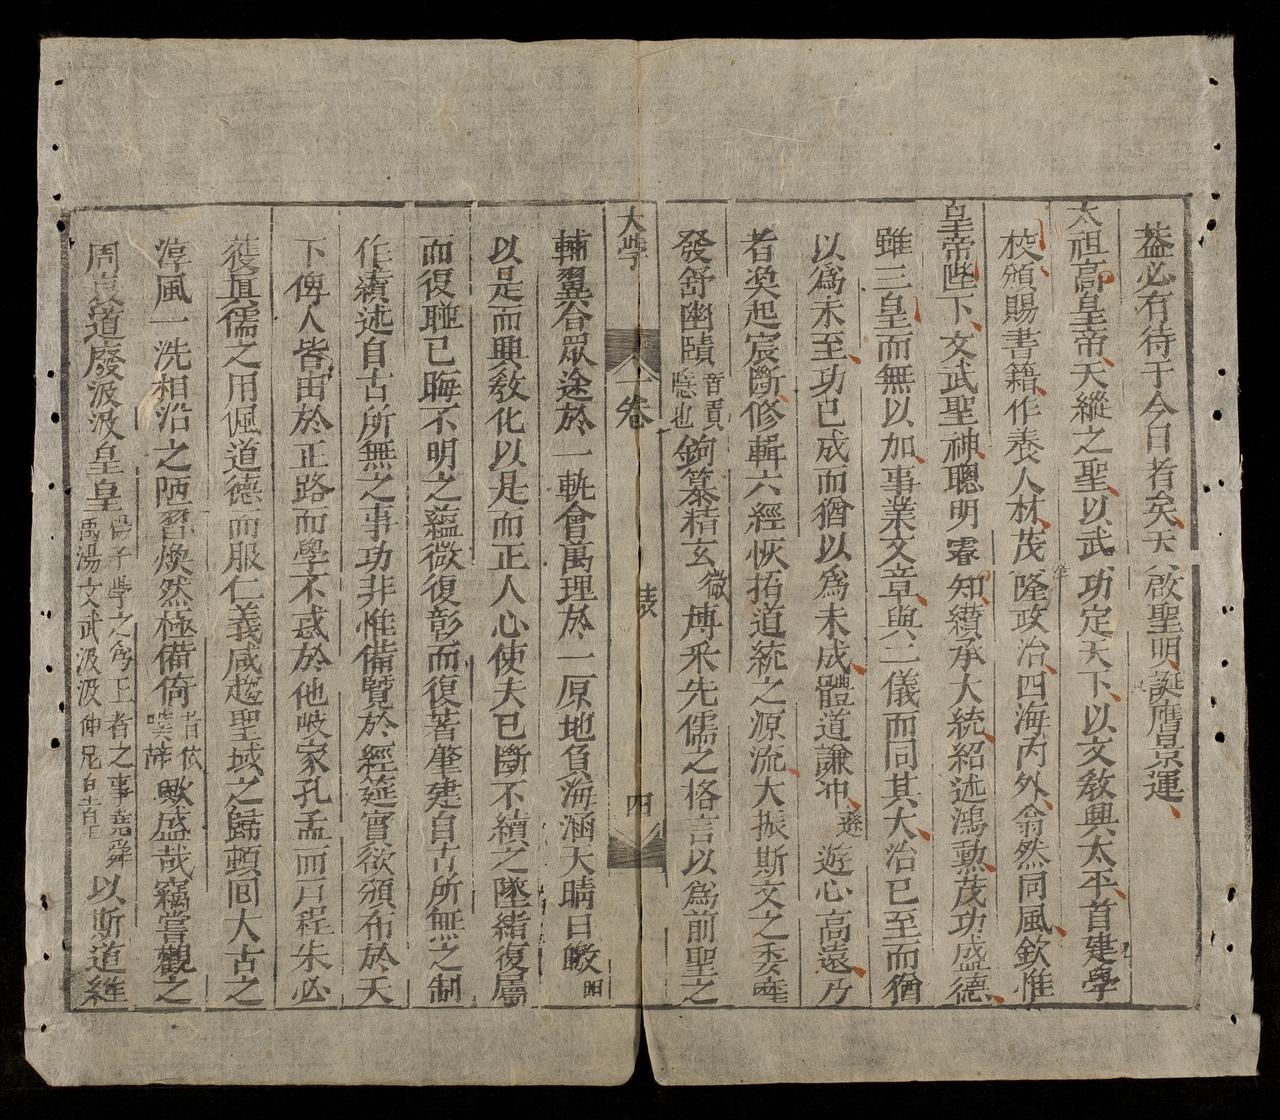 葢必有待于今日者矣天啟聖明誕膺景運
太祖高皇帝天縱之聖以武功定天下以文敎興太平首建學
校頒賜書籍作養人林茂隆政治四海內外翕然同風欽惟
皇帝陛下文武聖神聰明睿知纘承大統紹述鴻勳茂功盛德
雖三皇而無以加事業文章與二儀而同其大治已至而猶
以爲未至功已成而猶以爲未成體道謙冲遜遊心高遠乃
者奐起宸斷修輯六經恢拓道統之源流大振斯文之委
發舒幽賾音責隱也鉤纂精玄微博釆先儒之格言以爲前聖之
大學
一卷
四
輔翼合眾途於一軌會萬理於一原地負海涵大晴日皦明
以是而興敎化以是而正人心使夫已斷不續之墜緒復屬
而復聯已晦不明之蘊微復彰而復著肇建自古所無之制
作續述自古所無之事功非惟備覽於經筵實欲頒布於天
下俾人皆由於正路而學不惑於他岐家孔孟而戶程朱必
獲眞儒之用佩道德而服仁義咸趨聖域之歸頓囘大古之
淳風一洗相沿之陋習煥然極備倚者依歎辭歟盛哉竊嘗觀之
周衰道廢汲汲皇皇孟子學之爲王者之事堯舜禹湯文武汲汲仲尼皇皇以斯道維